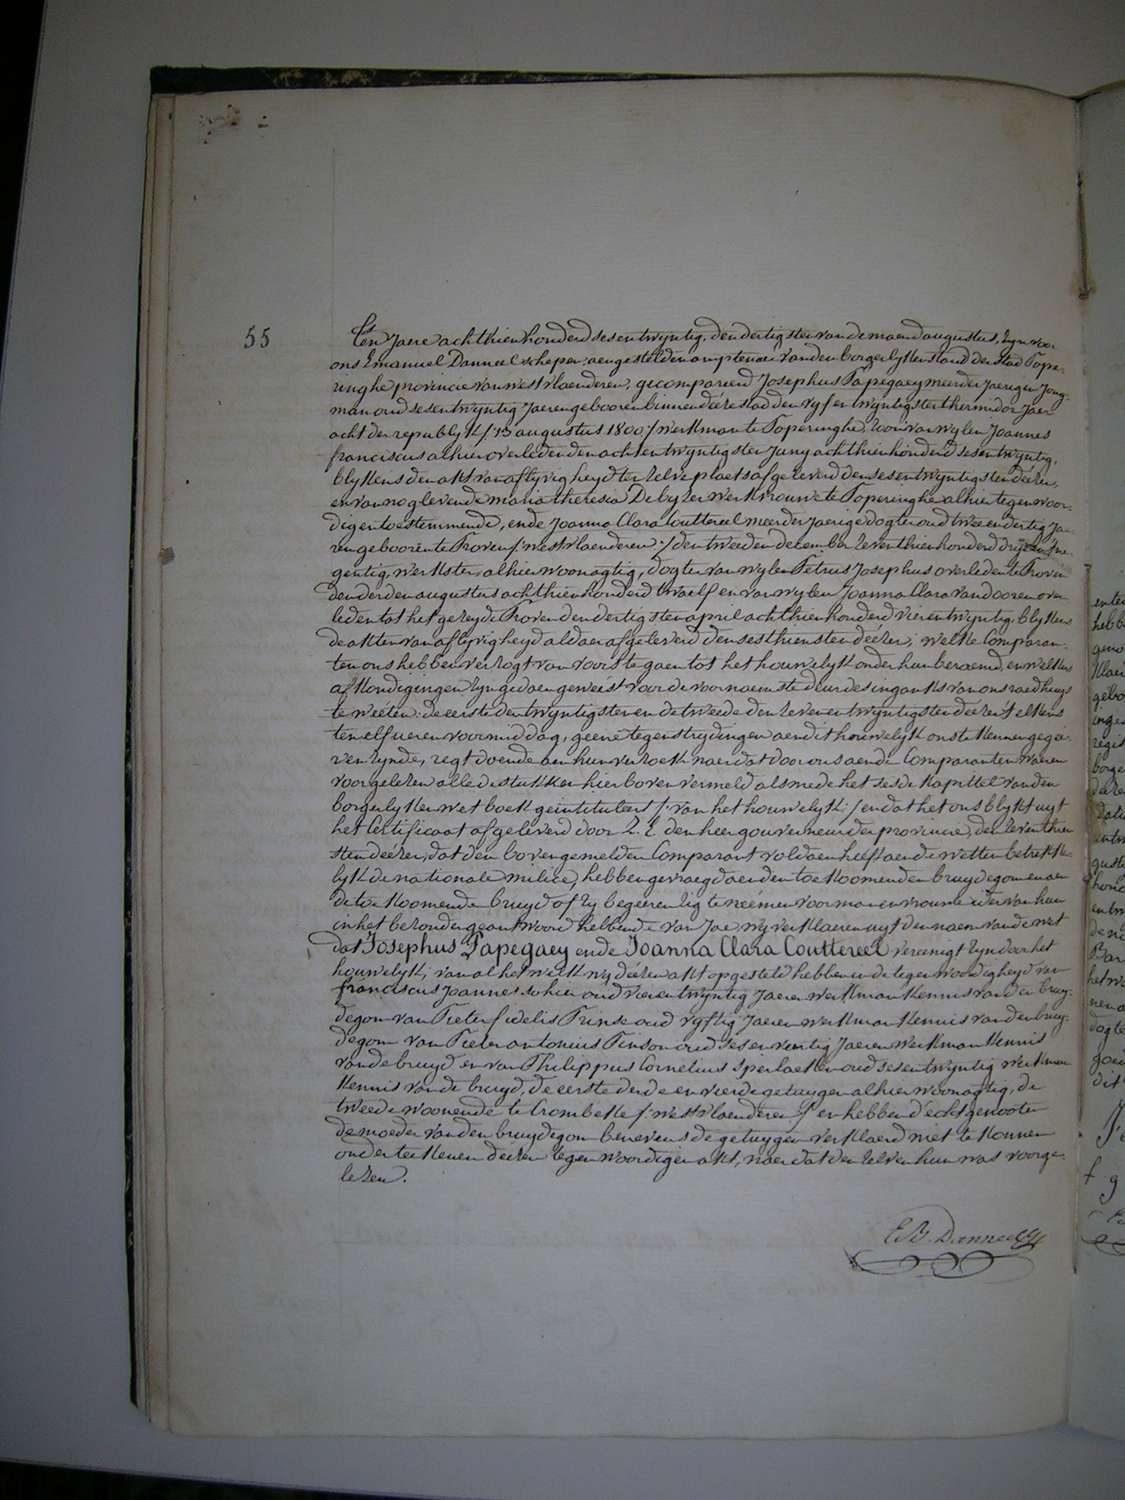 55
Ten Jaere achthien honderd sesentwyntig, den dertigsten van de maend augustus, zyn voor
ons Emanuel Danneel schepen, aengestelden amptenaer van den borgerlyken stand der stad Pope-
ringhe provincie van westvlaenderen, gecompareerd Josephus Papegaey meerderjaerigen Jong-
man oud sesentwyntig Jaeren gebooren binnen deéze stad den vyfentwyntigsten thermidor Jaer
acht der republyk /: 13 augustus 1800 :/ werkman te Poperinghe, zoon van wylen Joannes
franciscus alhier overleden den achtentwyntigsten Juny achthien honderd sesentwyntig,
blykens den akt van aflyvigheyd ter zelve plaets afgeleverd den sesentwyntigsten deézer,
en van nog levende maria theresia Debyser werkvrouw te Poperinghe alhier tegenwoor-
dig en toestemmende, ende Joanna Clara Couttereel meerderjaerige dogter oud twee en dertig Jae-
ren gebooren te Proven /: westvlaenderen :/ den tweeden december zeventhien honderd dryen ne-
gentig, werkster, alhier woonagtig, dogter van wylen Petrus Josephus overleden te Proven
den derden augustus achthien honderd twaelf en van wylen Joanna Clara Vandooren over-
leden tot het gezeyde Proven den dertigsten april achthien honderd vierentwyntig, blykens
de akten van aflyvigheyd aldaer afgeleverd den sesthiensten deézer; welke Comparan-
ten ons hebben verzogt van voorts te gaen tot het houwelyk onder hun beraemd, en welkers
afkondigingen zyn gedaen geweést voor de voornaemste deur des ingangs van ons raedhuys
te weéten: de eerste den twyntigsten en de tweede den zevenentwyntigsten deézer telkens
ten elf ueren voormiddag, geene tegenstrydingen aen dit houwelyk ons te kennen gegee-
ven zynde, regt doende aen hun verzoek naer dat door ons aen de Comparanten waeren
voorgelezen alle de stukken hier boven vermeld alsmede het sesde kapittel van den
borgerlyken wetboek geintituleert /: van het houwelyk :/ en dat het ons blykt uyt
het Certificaat afgeleverd door Z. E. den heer gouverneur der provincie, den zeventhien-
sten deézer, dat den bovengemelden Comparant voldaen heeft aen de wetten betrekke-
lyk de nationale milice, hebben gevraegd aen den toekoomenden bruydegom en aen
de toekoomende bruyd of zy begeeren zig te neémen voor man en vrouw: ider van hun
in het bezonder geantwoord hebbende van Jae, wy verklaeren uyt den naem van de wet
dat Josephus Papegaey ende Joanna Clara Couttereel vereenigt zyn door het
houwelyk; van al het welk wy deézen akt opgesteld hebben in de tegenwoordigheyd van
franciscus Joannes sohier oud vierentwyntig Jaeren werkman kennis van den bruy-
degom van Pieter fidelis Prinse oud vyftig Jaeren werkman kennis van den bruy-
degom van Pieter antonius Pinson oud sesenveertig Jaeren werkman kennis
van de bruyd en van Philippus Cornelius Sperlaeken oud sesentwyntig werkman
kennis van de bruyd, de eerste derde en vierde getuygen alhier woonagtig, de
tweede woonende te Crombeke /: westvlaenderen :/ en hebben d'echtgenooten
de moeder van den bruydegom benevens de getuygen verklaerd niet te konnen
onderteekenen deézen tegenwoordigen akt, naer dat den zelven hun was voorge-
lezen.
E.B. Danneel